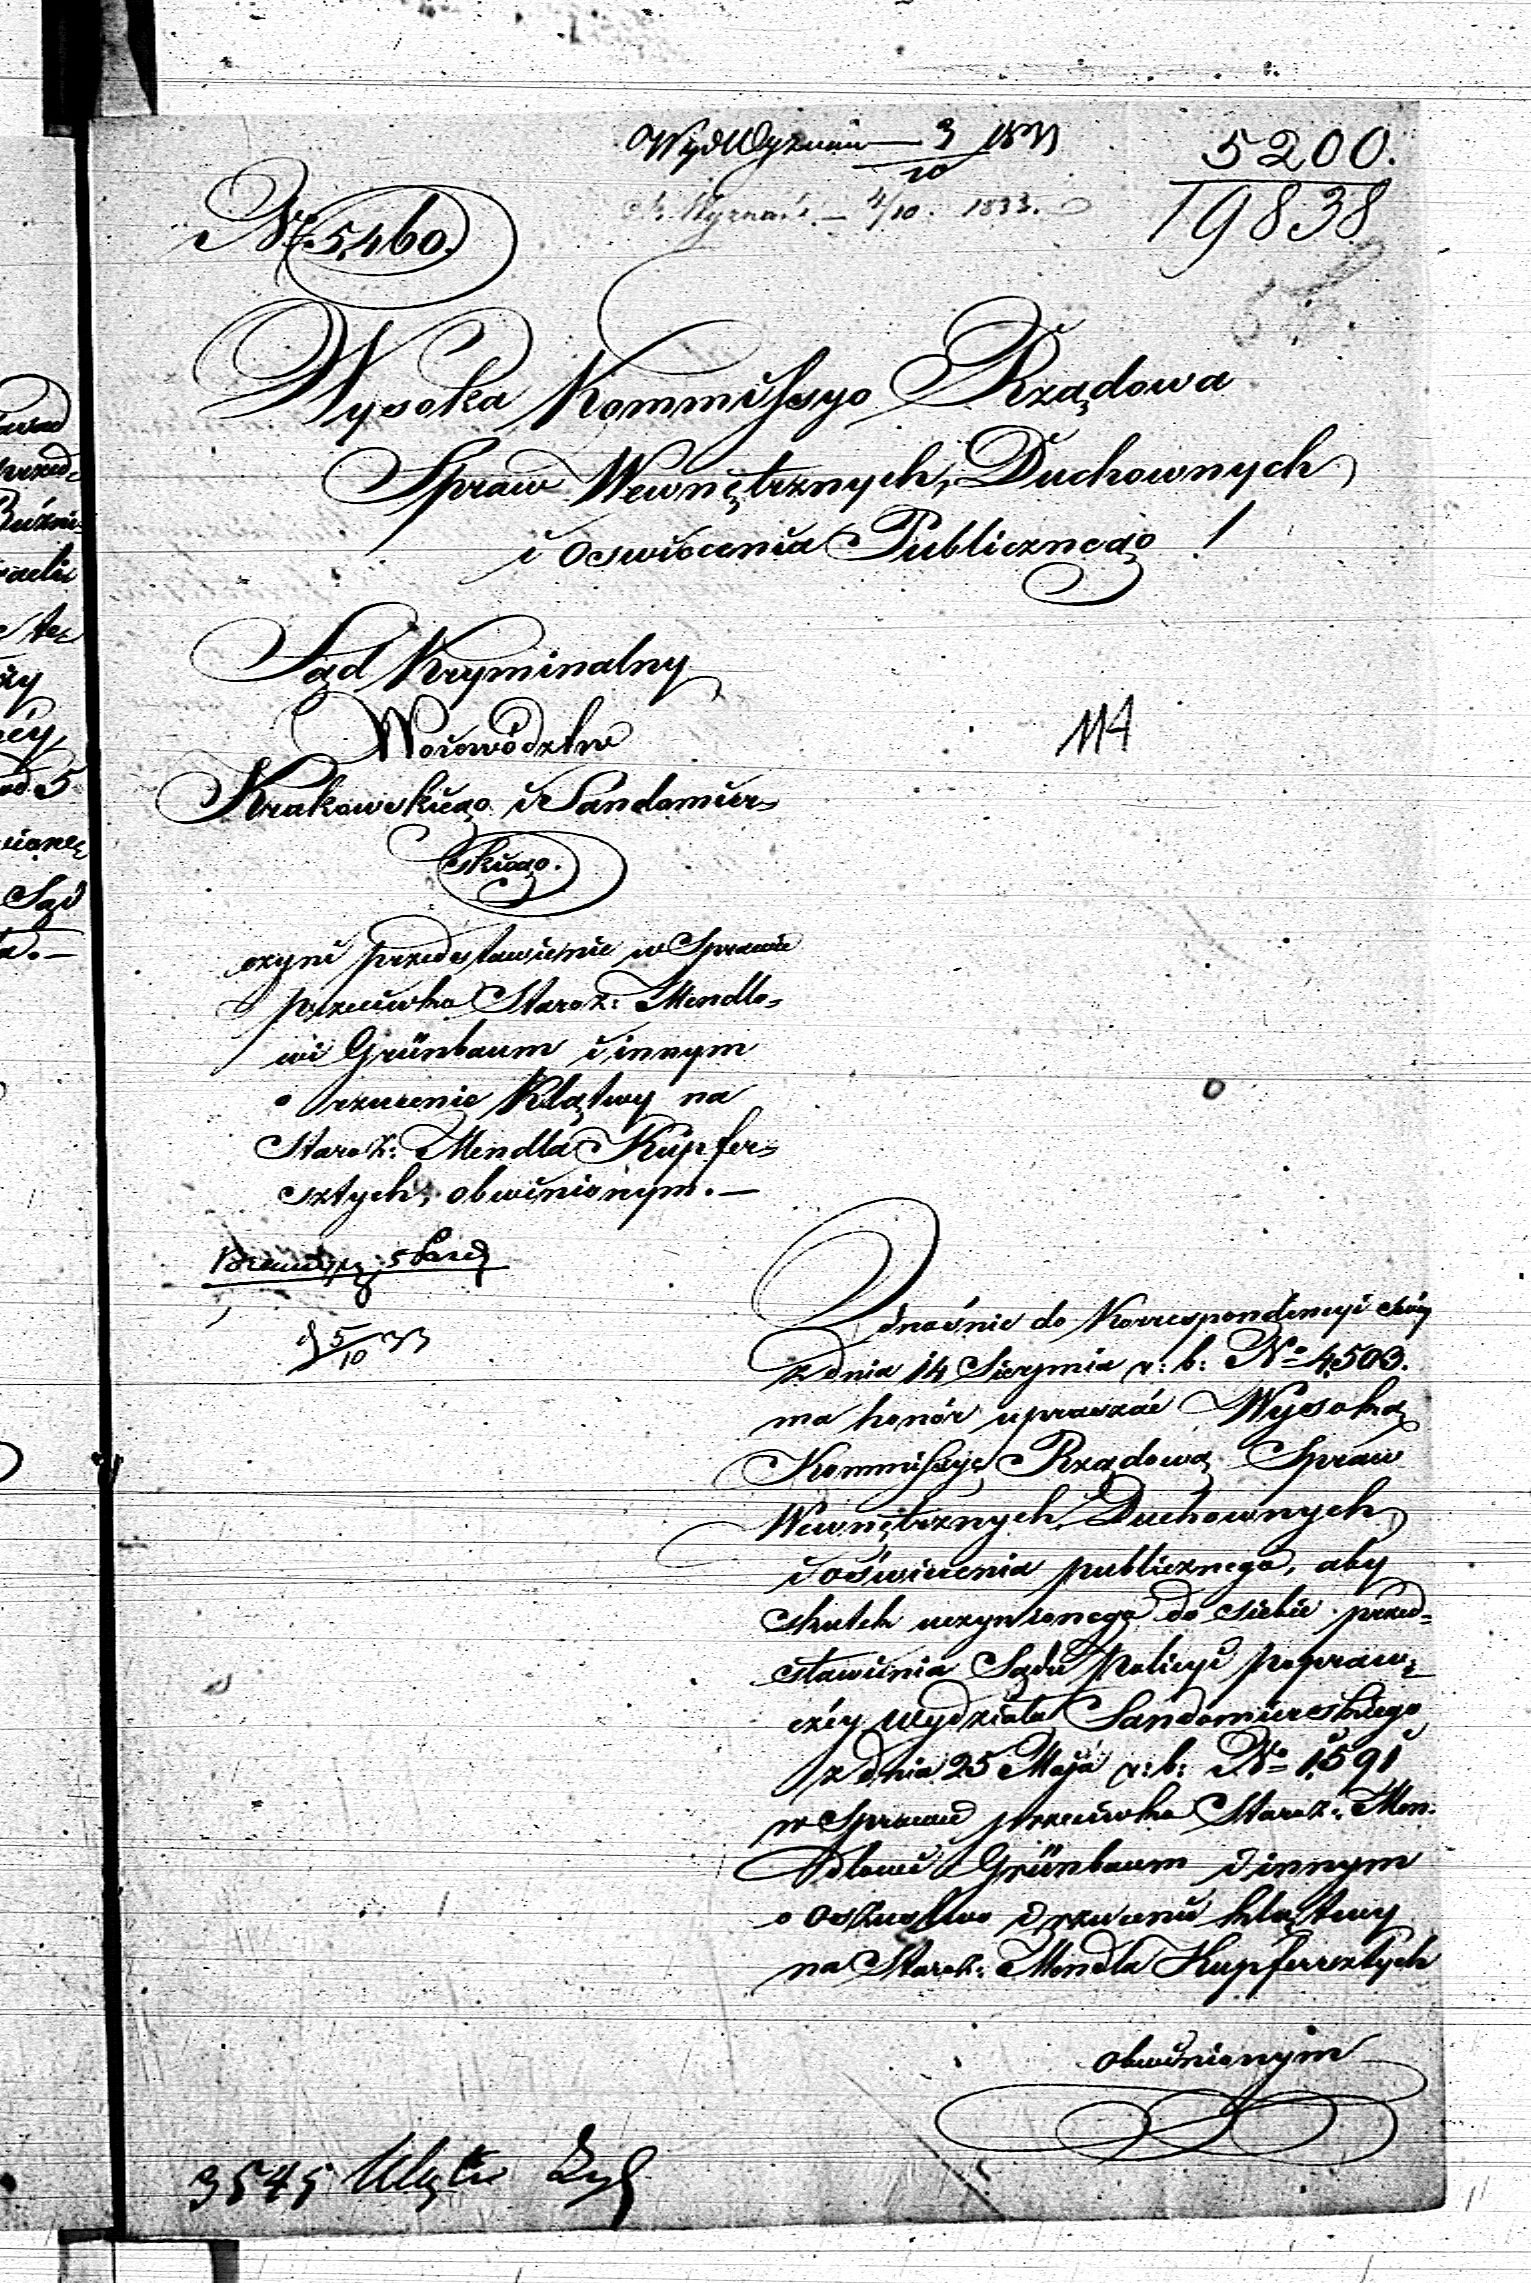 Wyd Wyznań — 3/10 1833
5200.
19838
Wyznań. — 4/10. 1833.
No 5,460.
Wysoka Kommissyo Rządowa
Spraw Wewnętrznych, Duchownych
i Oswiecenia Publicznego !
Sąd Kryminalny
Woiewództw
Krakowskiego i Sandomier=
skiego.
114
czyni przedstawienie w Sprawie
przeciwko Staroz: Mendlo=
wi Grünbaum i innym
o rzucenie Klątwy na
Staroz: Mendla Kupfer=
sztych, obwinionym. —
5/10 33
Odnośnie do Korrespondencyi swéy
z dnia 14 Sierpnia r: b: No 4,503.
ma honór upraszać Wysoką
Kommissyę Rządową Spraw
Wewnętrznych, Duchownych
i oświecenia publicznego, aby
skutek uczynionego do siebie przed=
stawienia Sądu Policyi popraw=
czéy Wydziału Sandomierskiego
z dnia 25 Maja r: b: No 1,591
w Sprawie przeciwko Staroz: Men=
dlowi Grünbaum i innym
o oszustwo i rzucenie klątwy
na Staroz: Mendla Kupfersztych
obwinionym
3545